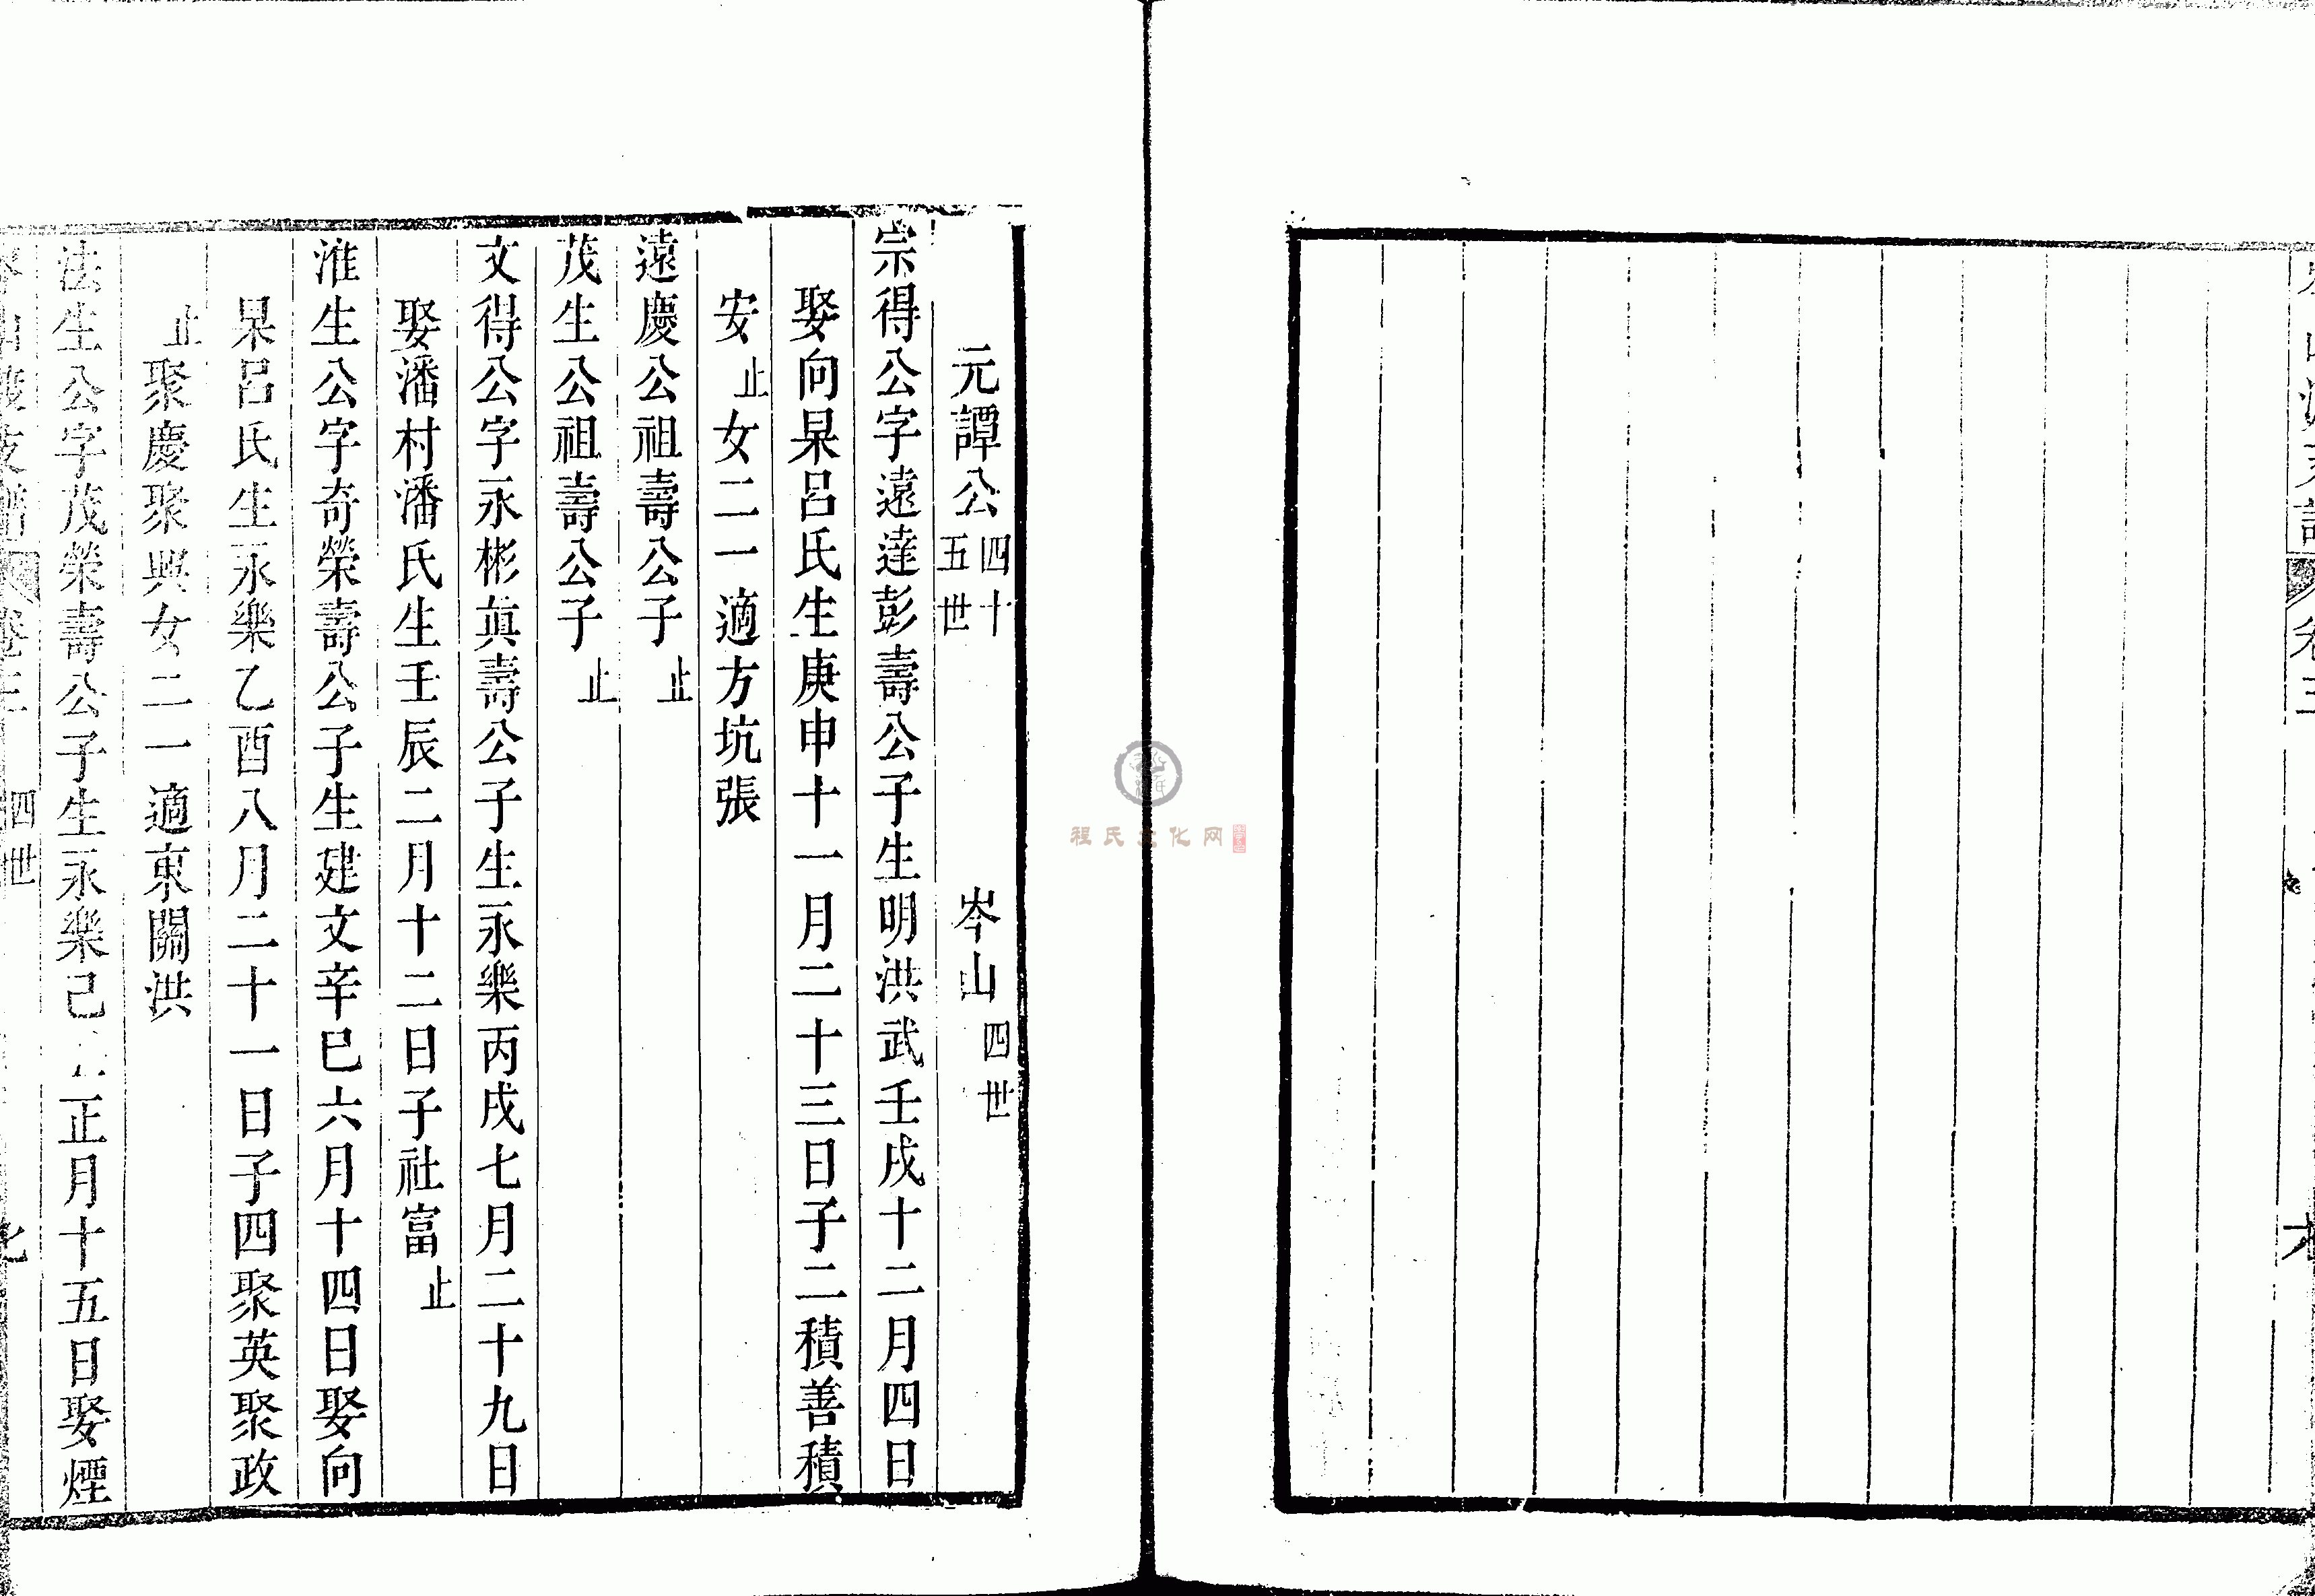 元譚公四十五世 岑山四世
宗得公字遠達彭壽公子生明洪武壬戌十二月四日
娶向杲呂氏生庚申十一月二十三日子二積善積
安止女二一適方坑張
遠慶公祖壽公子止
茂生公祖壽公子止
文得公字永彬眞壽公子生永樂丙戌七月二十九日
娶潘村潘氏生壬辰二月十二日子社富止
淮生公字奇榮壽公子生建文辛巳六月十四日娶向
杲呂氏生永樂乙酉八月二十一日子四聚英聚政
止聚慶聚興女二一適東關洪
法生公字茂榮壽公子生永樂己正月十五日娶煙
山渡支譜 卷三 四世
程氏文化网